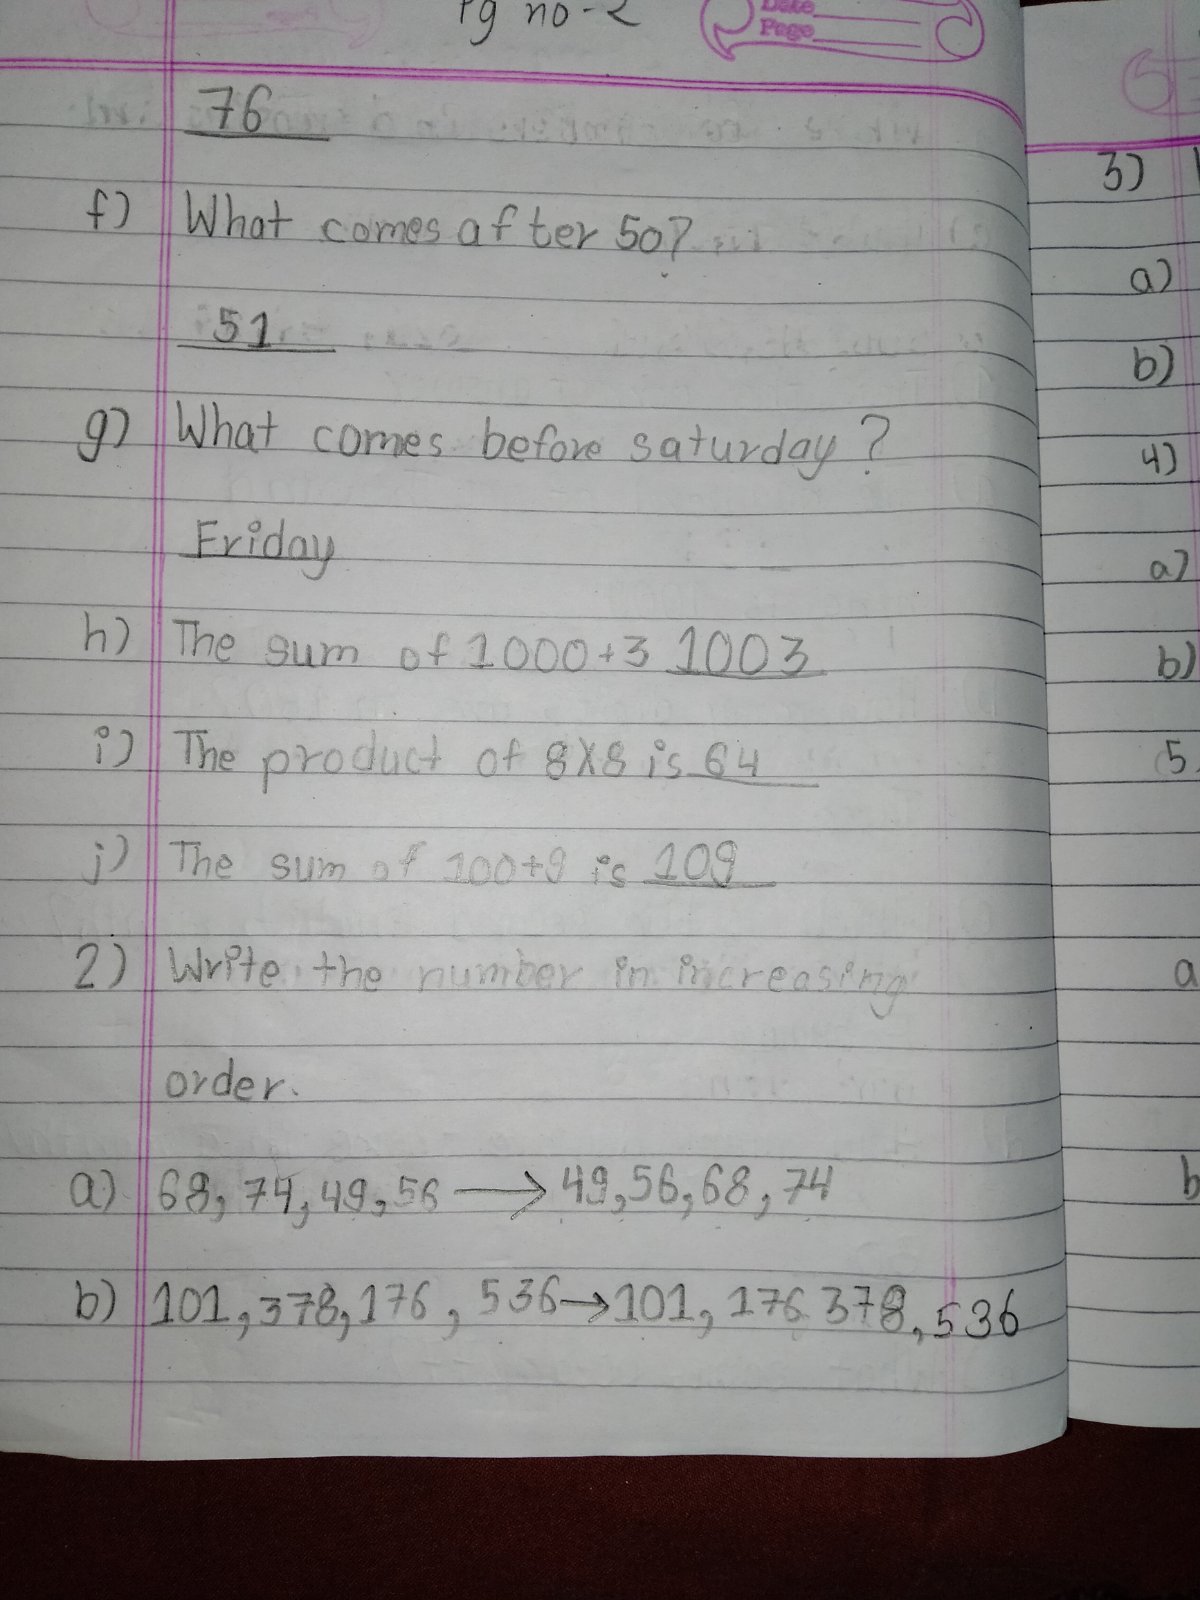 Pg no-2
Date
Page
76
f) What comes after 50?
51
g) What comes before saturday?
Friday
h) The sum of 1000+3 1003
i) The product of 8X8 is 64
j) The sum of 100+9 is 109
2) Write the number in increasing
order.
a) 68, 74, 49, 56 → 49, 56, 68, 74
b) 101, 378, 176, 536 → 101, 176 378, 536
3)
a)
b)
4)
a)
b)
5.
a
b